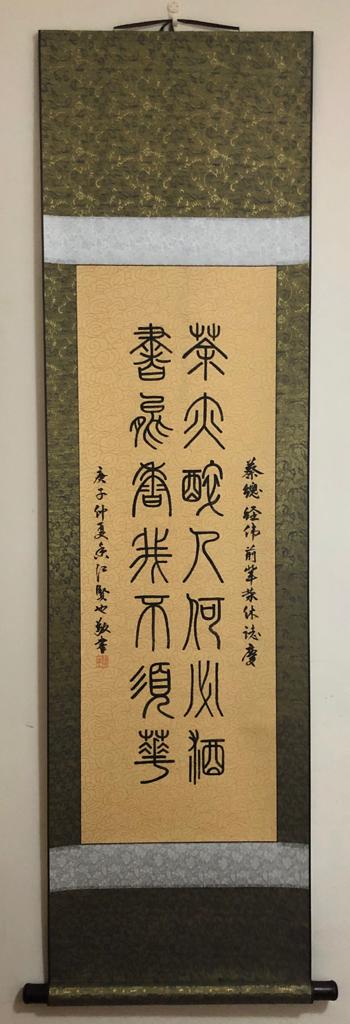 蔡總经伟前輩荣休誌慶
茶亦醉人何必酒
書能香我不須華
庚子仲夏香江賢也敬書